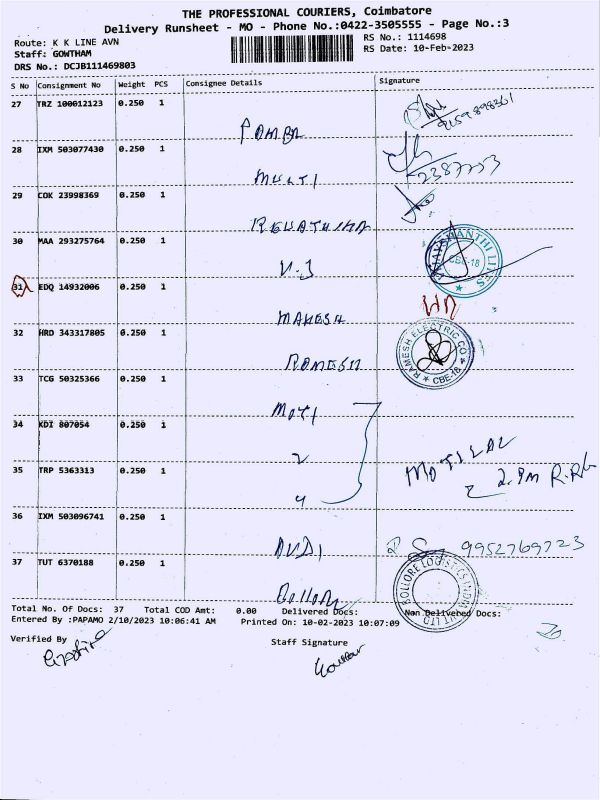 THE PROFESSIONAL COURIERS, Coimbatore
Delivery Runsheet - MO - Phone No.:0422-3505555 - Page No.:3
Route: K K LINE AVN
RS No.: 1114698
Staff: GOWTHAM
RS Date: 10-Feb-2023
DRS No.: DCJB111469803
S No Consignment No Weight PCS Consignee Details Signature
27 TRZ 100012123 0.250 1
28 IXM 503077430 0.250 1
MULTI
29 COK 23998369 0.250 1
REVATHIHA
30 MAA 293275764 0.250 1
V.J
CBE-18
31 EDQ 14932006 0.250 1
MAHESH
32 HRD 343317805 0.250 1
RAMESH
RAMESH ELECTRIC CO
CBE-18
33 TCG 50325366 0.250 1
MOTI
34 KDI 807054 0.250 1
2
35 TRP 5363313 0.250 1
4
MOTILAL
36 IXM 503096741 0.250 1
AUDI
9952769723
37 TUT 6370188 0.250 1
Bollore
BOLLORE LOGISTICS INDIA PVT LTD
Total No. Of Docs: 37 Total COD Amt: 0.00 Delivered Docs: Non Delivered Docs:
Entered By :PAPAMO 2/10/2023 10:06:41 AM Printed On: 10-02-2023 10:07:09
Verified By
Staff Signature